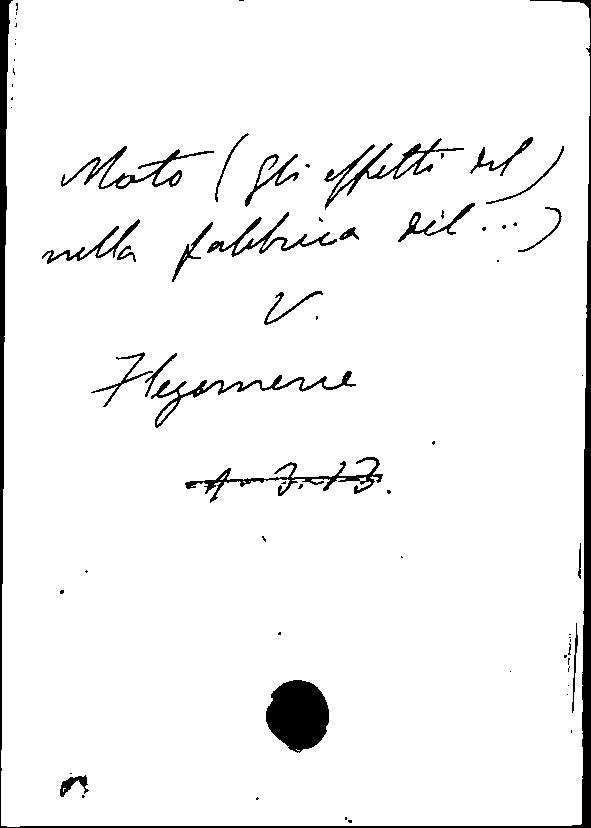 Moto (gli effetti del)
nella fabbrica del...)
V.
Flegomene
A-3.13.